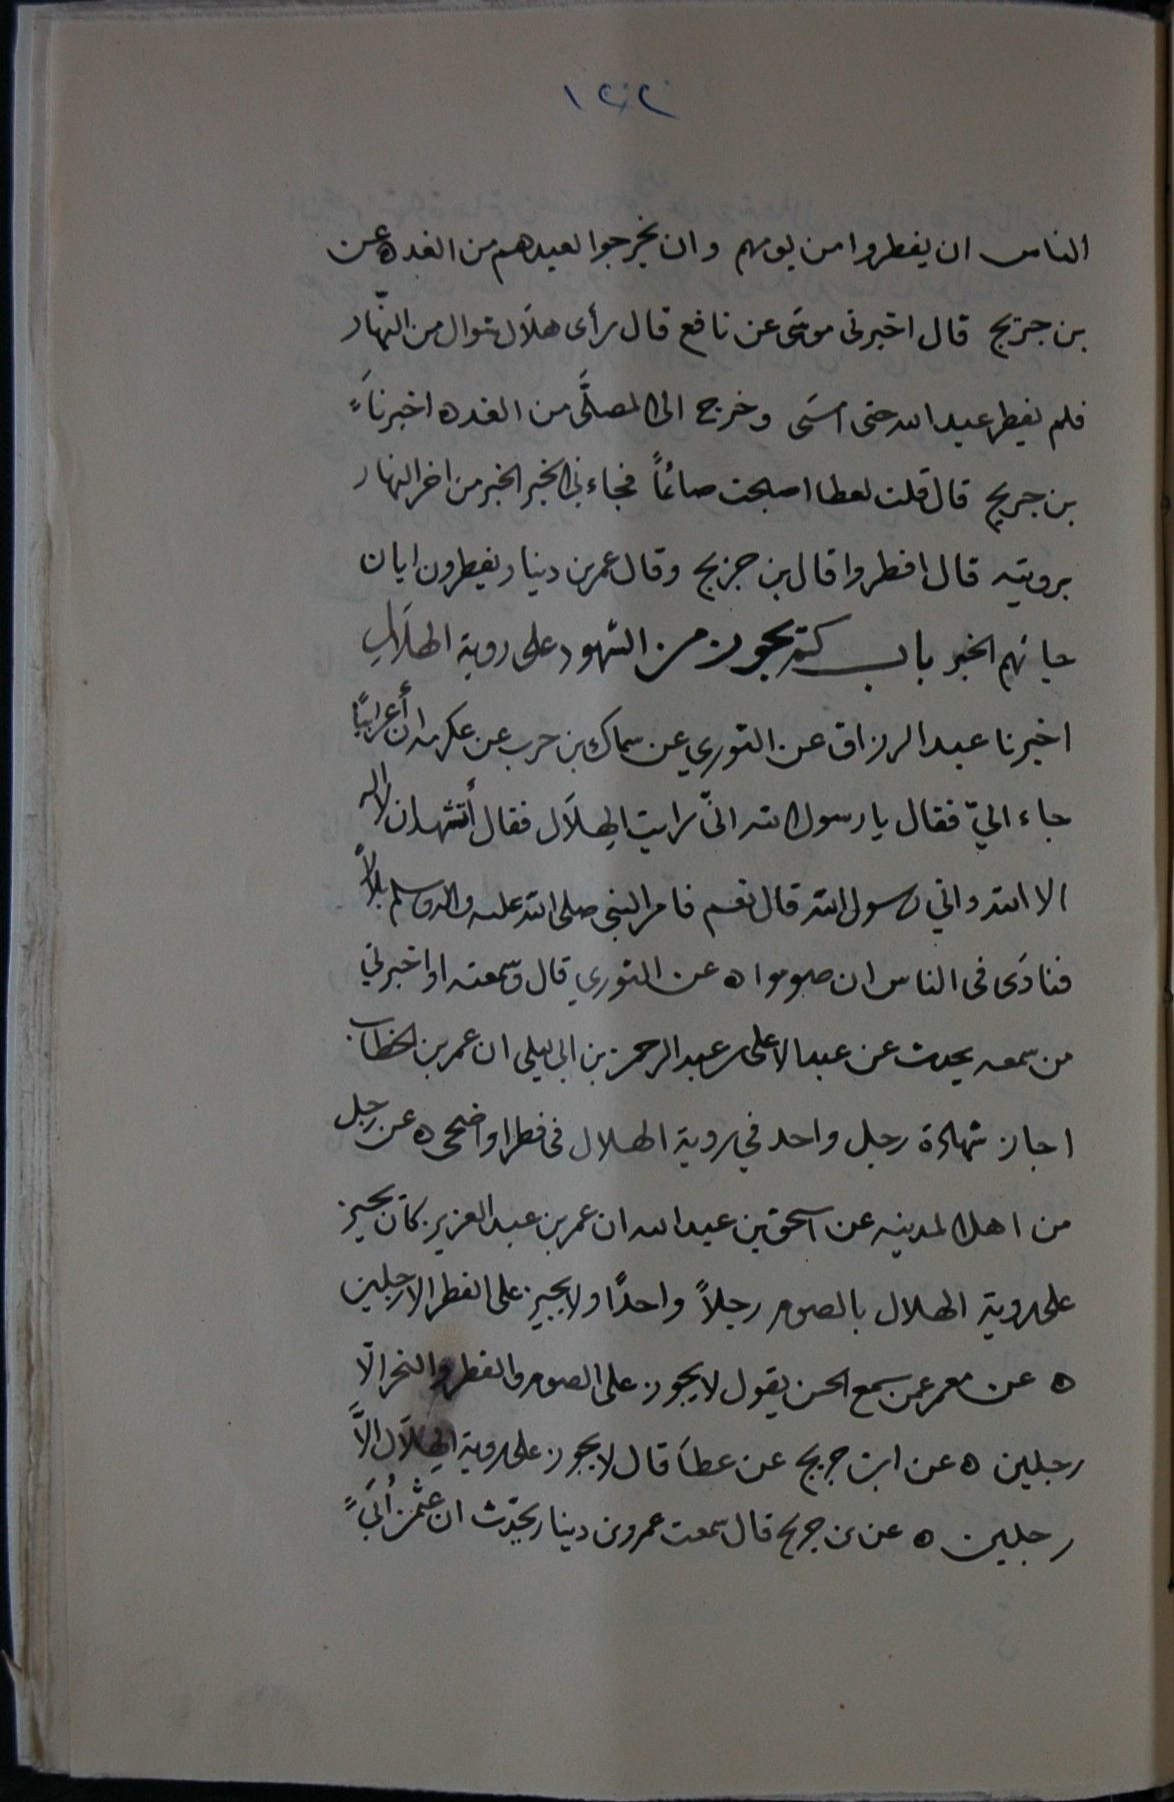 الناس ان يفطروا من يومهم وان يخرجوا لعيدهم من الغد ه عن
بن جريج قال اخبرنى موسى عن نافع قال رأى هلال شوال من النهار
فلم يفطر عبد الله حتى امسى وخرج الى المصلَّى من الغد ه اخبرنا
بن جريج قال قلت لعطا اصبحت صائماً فجاءنى الخبر الخبر من اخر النهار
برويته قال افطروا قال بن جريج وقال عمر بن دينار يفطرون ايان
جانهم الخبر باب كم يجوز من الشهود على روية الهلال
اخبرنا عبد الرزاق عن الثوري عن سماك بن حرب عن عكرمه ان أعرابيًا
جاء اليّ فقال يا رسول الله انى رايت الهلال فقال أتشهد ان لا اله
الا الله واني رسول الله قال نعم فامر النبى صلى الله عليه واله وسلم بلالاً
فنادى فى الناس ان صوموا ه عن الثوري قال وسمعته او اخبرني
من سمعه يحدث عن عبد الاعلى عبد الرحمن بن ابى ليلى ان عمر بن الخطاب
اجاز شهادة رجل واحد في روية الهلال فى فطر او اضحى ه عن رجل
من اهل المدينه عن اسحق بن عبد الله ان عمر بن عبد العزيز كان يجيز
على روية الهلال بالصوم رجلاً واحدًا ولا يجيز على الفطر الا رجلين
ه عن معمر عمن سمع الحسن يقول لا يجوز على الصوم والفطر والنحر الّا
رجلين ه عن ابن جريج عن عطاَ قال لا يجوز على روية الهِلَال الاَّ
رجلين ه عن بن جريج قال سمعت عمرو بن دينار يحدّث ان عثمن أُبَىَ